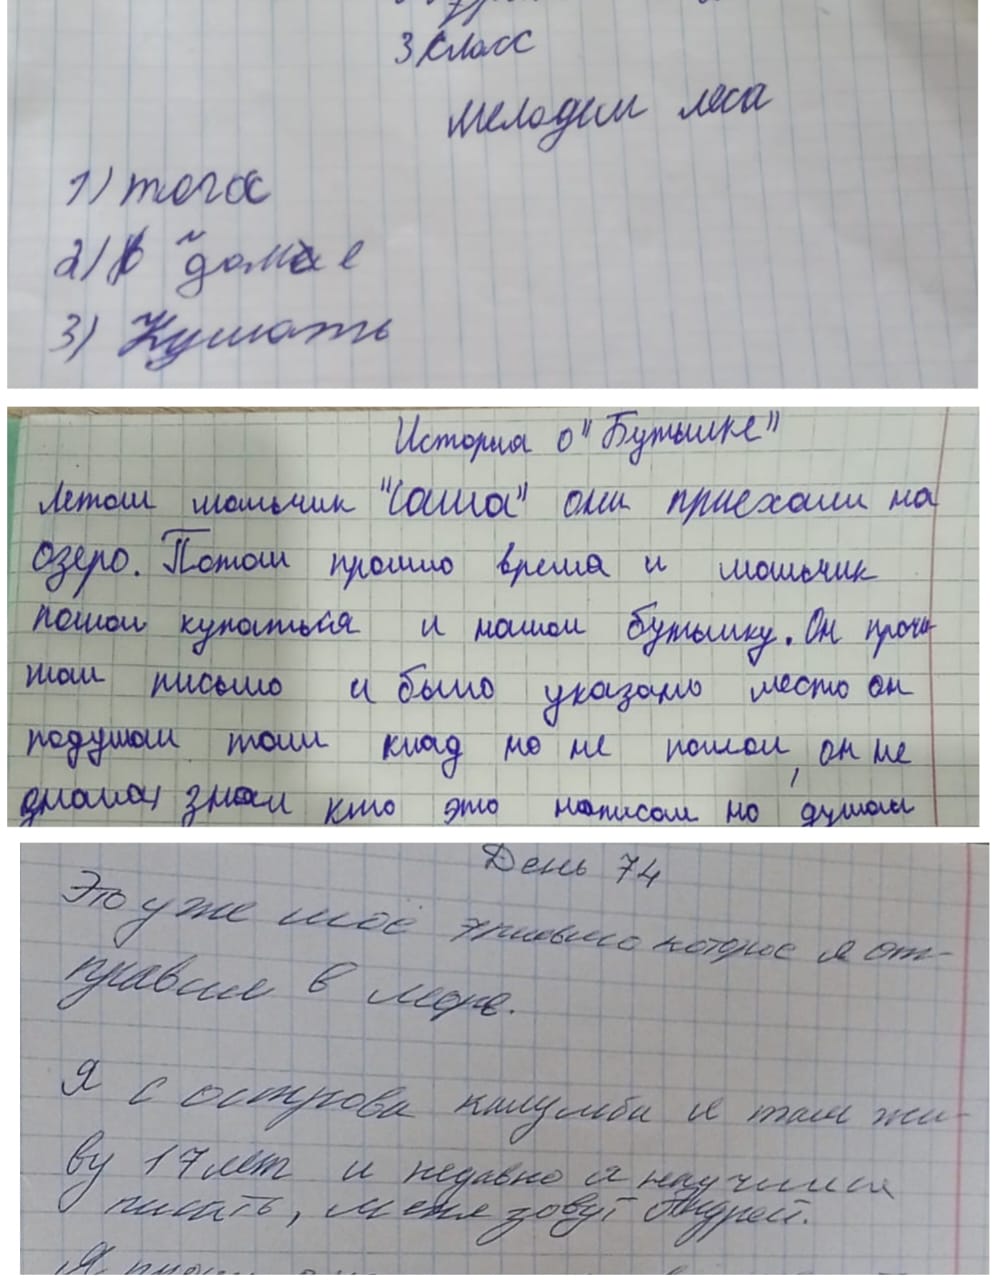 3 класс
мелодем леса
1) тога
2) в доме
3) Кушать
История о "Бутылке"
Летом мальчик "Саша" они приехали на
озеро. Потом прошло время и мальчик
пошол купаться и нашол бутылку. Он прочи-
тал письмо и было указано место он
подумал там клад но не пошол, он не
знал кто это написал но думал
День 74
Это уже моё письмо которое я от-
правил в море.
Я с острова калумба я там жи-
ву 17 лет и недавно я научился
писать, меня зовут Андрей.